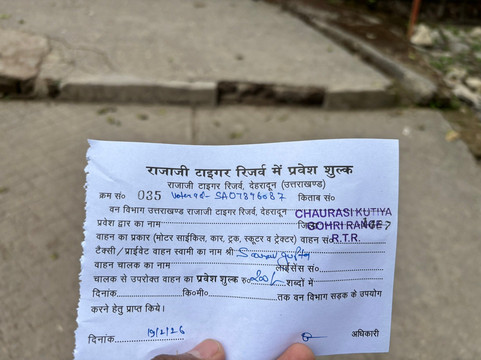 राजाजी टाइगर रिजर्व में प्रवेश शुल्क
राजाजी टाइगर रिजर्व, देहरादून (उत्तराखण्ड)
क्रम सं० 035 किताब सं०
वन विभाग उत्तराखण्ड राजाजी टाइगर रिजर्व, देहरादून CHAURASI KUTIYA
प्रवेश द्वार का नाम GOHRI RANGE
वाहन का प्रकार (मोटर साईकिल, कार, ट्रक, स्कूटर व ट्रेक्टर) वाहन सं० R.T.R.
टैक्सी / प्राईवेट वाहन स्वामी का नाम श्री
वाहन चालक का नाम लाईसेंस सं०
चालक से उपरोक्त वाहन का प्रवेश शुल्क रु० शब्दों में
दिनांक कि०मी० तक वन विभाग सड़क के उपयोग
करने हेतु प्राप्त किये।
दिनांक 19/2/26 अधिकारी